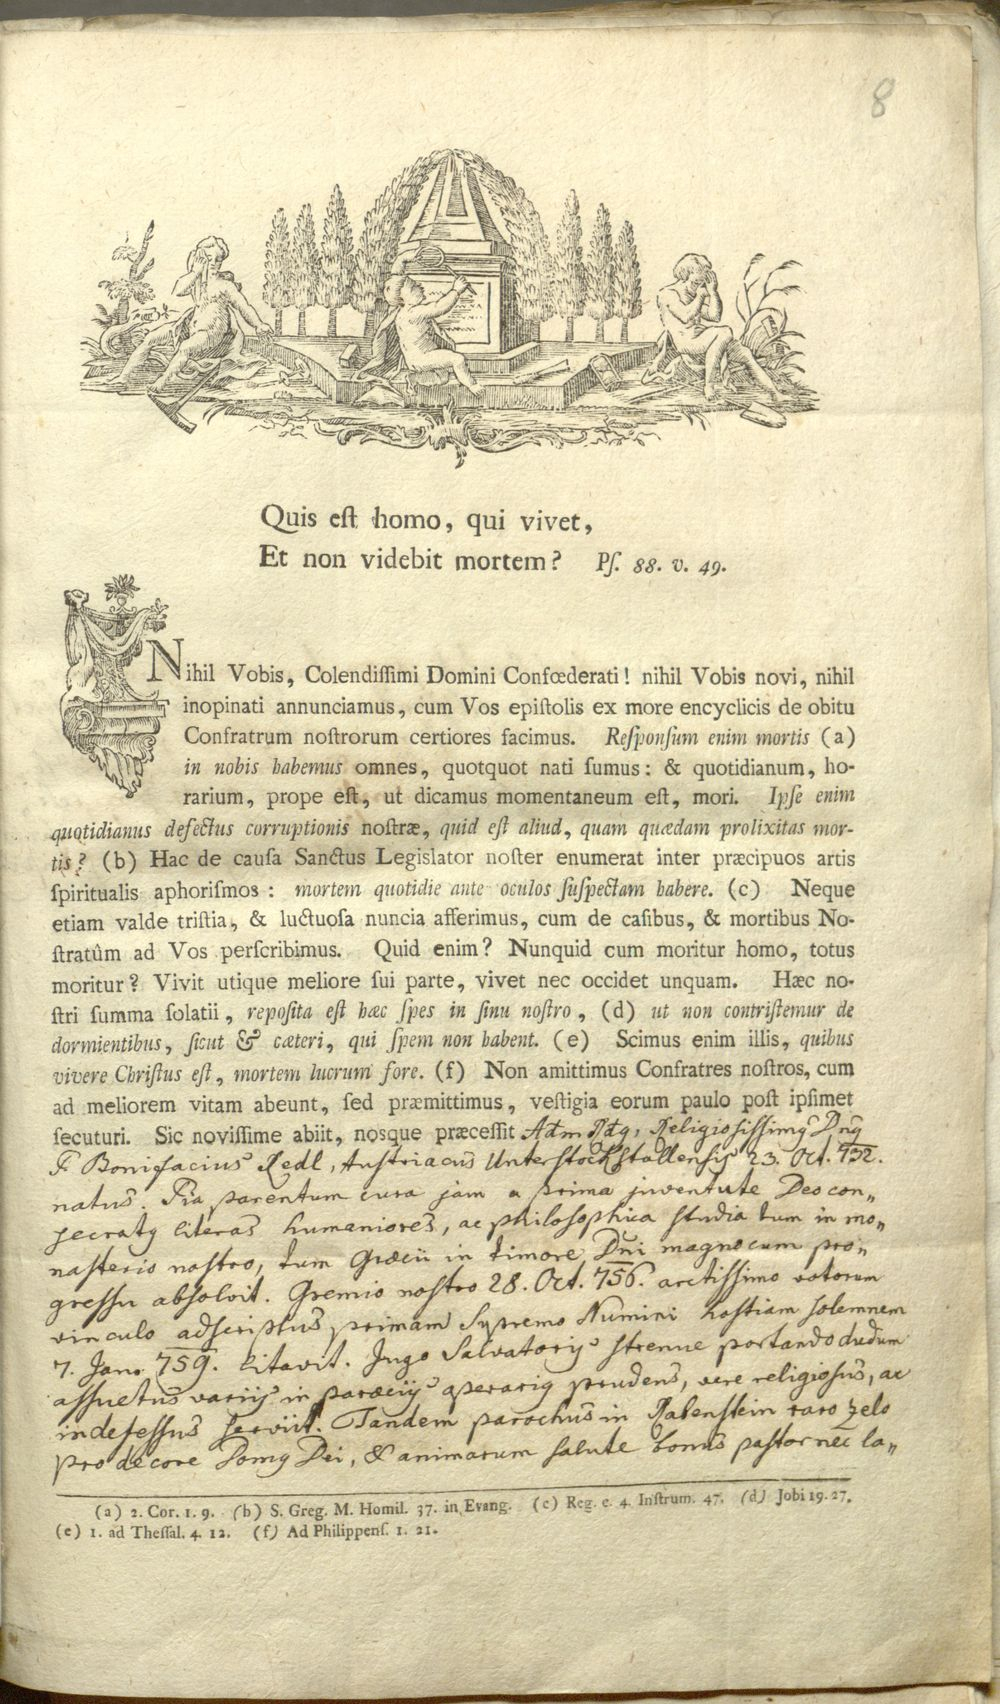 8
Quis est homo, qui vivet,
Et non videbit mortem? Ps. 88. v. 49.
Nihil Vobis, Colendissimi Domini Confœderati! nihil Vobis novi, nihil
inopinati annunciamus, cum Vos epistolis ex more encyclicis de obitu
Confratrum nostrorum certiores facimus. Responsum enim mortis (a)
in nobis habemus omnes, quotquot nati sumus: & quotidianum, ho-
rarium, prope est, ut dicamus momentaneum est, mori. Ipse enim
quotidianus defectus corruptionis nostræ, quid est aliud, quam quædam prolixitas mor-
tis? (b) Hac de causa Sanctus Legislator noster enumerat inter præcipuos artis
spiritualis aphorismos: mortem quotidie ante oculos suspectam habere. (c) Neque
etiam valde tristia, & luctuosa nuncia afferimus, cum de casibus, & mortibus No-
stratûm ad Vos perscribimus. Quid enim? Nunquid cum moritur homo, totus
moritur? Vivit utique meliore sui parte, vivet nec occidet unquam. Hæc no-
stri summa solatii, reposita est hæc spes in sinu nostro, (d) ut non contristemur de
dormientibus, sicut & cæteri, qui spem non habent. (e) Scimus enim illis, quibus
vivere Christus est, mortem lucrum fore. (f) Non amittimus Confratres nostros, cum
ad meliorem vitam abeunt, sed præmittimus, vestigia eorum paulo post ipsimet
secuturi. Sic novissime abiit, nosque præcessit Adm Rdg, Religiosissimg Dng
F Bonifacius Redl, Austriacus Unterstockstallensis 23. Oct. 732.
natus. Pia parentum cura jam a prima juventute Deo con„
secratg literas humaniores, ac philosophica studia tum in mo„
nasterio nostro, tum Græcii in timore Dni magno cum pro„
gressu absolvit. Gremio nostro 28. Oct. 756. arctissimo votorum
vinculo adscriptus primam Supremo Numini hostiam solemnem
7. Janr 759. litavit. Jugo Salvatoris strenue portando dudum
assuetus variis in parœciis operarig prudens, vere religiosus, ac
indefessus serviit. Tandem parochus in Rabenstein raro zelo
pro decore Domg Dei, & animarum salute bonus pastor nec la„
(a) 2. Cor. 1. 9. (b) S. Greg. M. Homil. 37. in Evang. (c) Reg. c. 4. Instrum. 47. (d) Jobi 19. 27.
(e) 1. ad Thessal. 4. 12. (f) Ad Philippens. 1. 21.